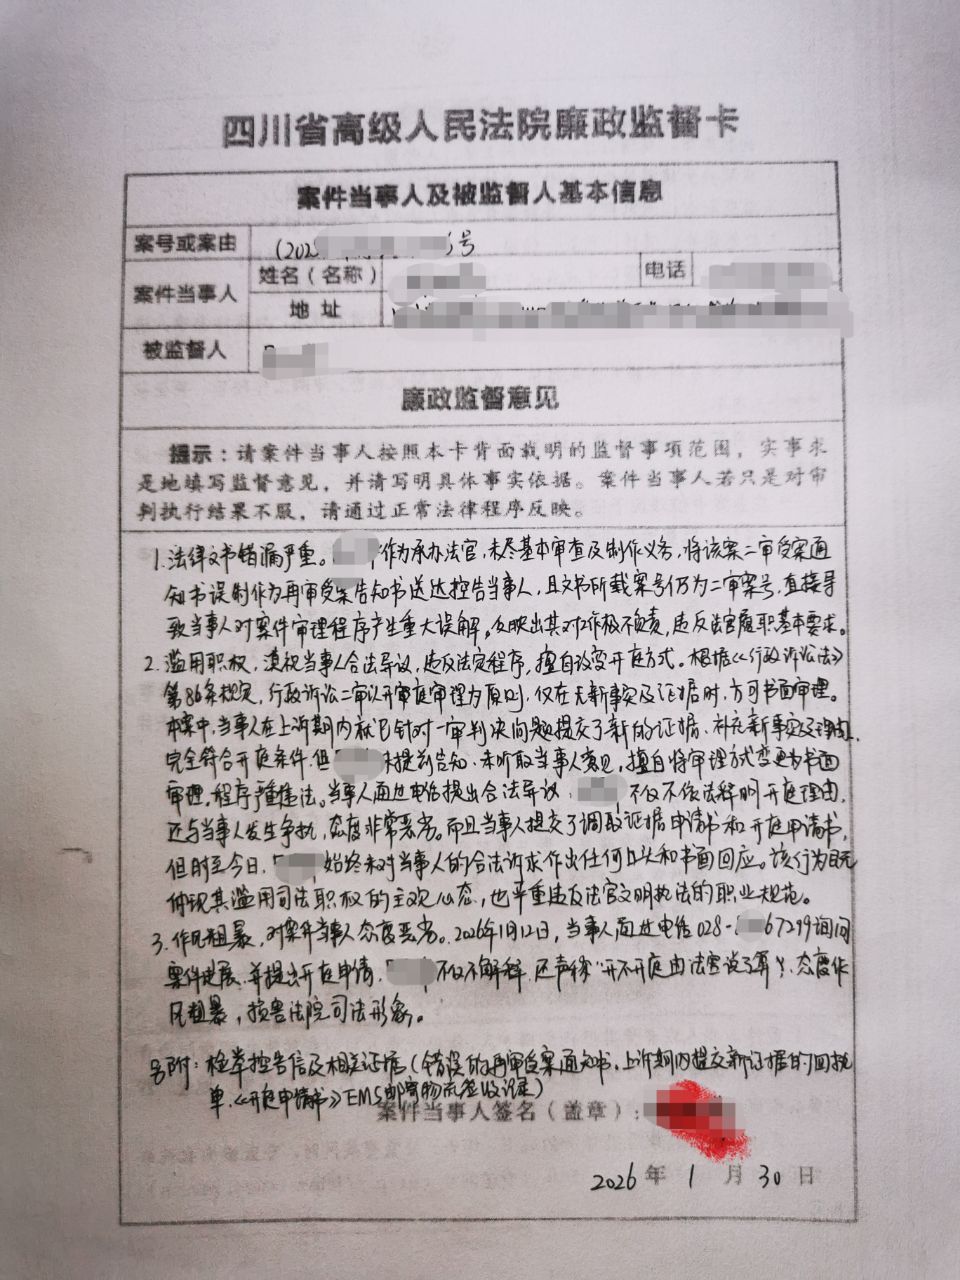 四川省高级人民法院廉政监督卡
案件当事人及被监督人基本信息
案号或案由 (202 号
案件当事人 姓名（名称） 电话
地 址
被监督人
廉政监督意见
提示：请案件当事人按照本卡背面载明的监督事项范围，实事求
是地填写监督意见，并请写明具体事实依据。案件当事人若只是对审
判执行结果不服，请通过正常法律程序反映。
1.法律文书错漏严重。 作为承办法官，未尽基本审查及制作义务，将该案二审受案通
知书误制作为再审受案告知书送达控告当事人，且文书所载案号仍为二审案号，直接导
致当事人对案件审理程序产生重大误解。反映出其对工作极不负责，违反法官履职基本要求。
2.滥用职权，漠视当事人合法异议，违反法定程序，擅自改变开庭方式。根据《行政诉讼法》
第86条规定，行政诉讼二审以开审庭审理为原则，仅在无新事实及证据时，方可书面审理。
本案中，当事人在上诉期内 已针对一审判决问题提交了新的证据、补充新事实及理由，
完全符合开庭条件，但 未提前告知、未听取当事人意见，擅自将审理方式变更为书面
审理，程序严重违法。当事人通过电话提出合法异议， 不仅不依法释明开庭理由，
还与当事人发生争执，态度非常恶劣。而且当事人提交了调取证据申请书和开庭申请书，
但时至今日， 始终未对当事人的合法诉求作出任何口头和书面回应。该行为既充
分体现其滥用司法职权的主观心态，也严重违反法官文明执法的职业规范。
3.作风粗暴，对案件当事人态度恶劣。2026年1月12日，当事人通过电话028- 67299询问
案件进展、并提出开庭申请， 不仅不解释，还声称“开不开庭由法官说了算”，态度作
风粗暴，损害法院司法形象。
另附：检举控告信及相关证据（错误的再审受案通知书、上诉期内提交新证据的回执
单、《开庭申请书》EMS邮寄物流签收记录）
案件当事人签名（盖章）：
2026 年 1 月 30 日